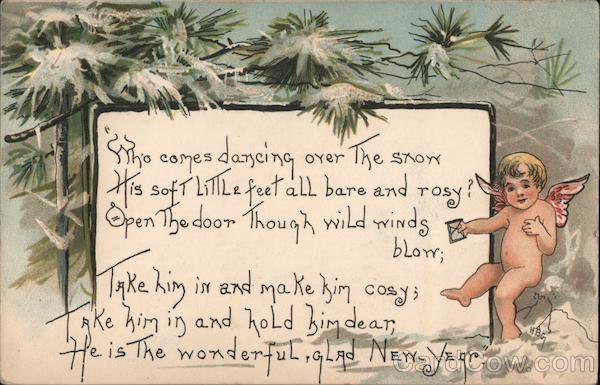 "Who comes dancing over The snow
His sofT LiTTLe feet all bare and rosy?
Open The door Though wild winds
blow;
Take him in and make him cosy;
Take him in and hold him dear,
He is The wonderful, glad New-Year."
HBG
CardCow.com